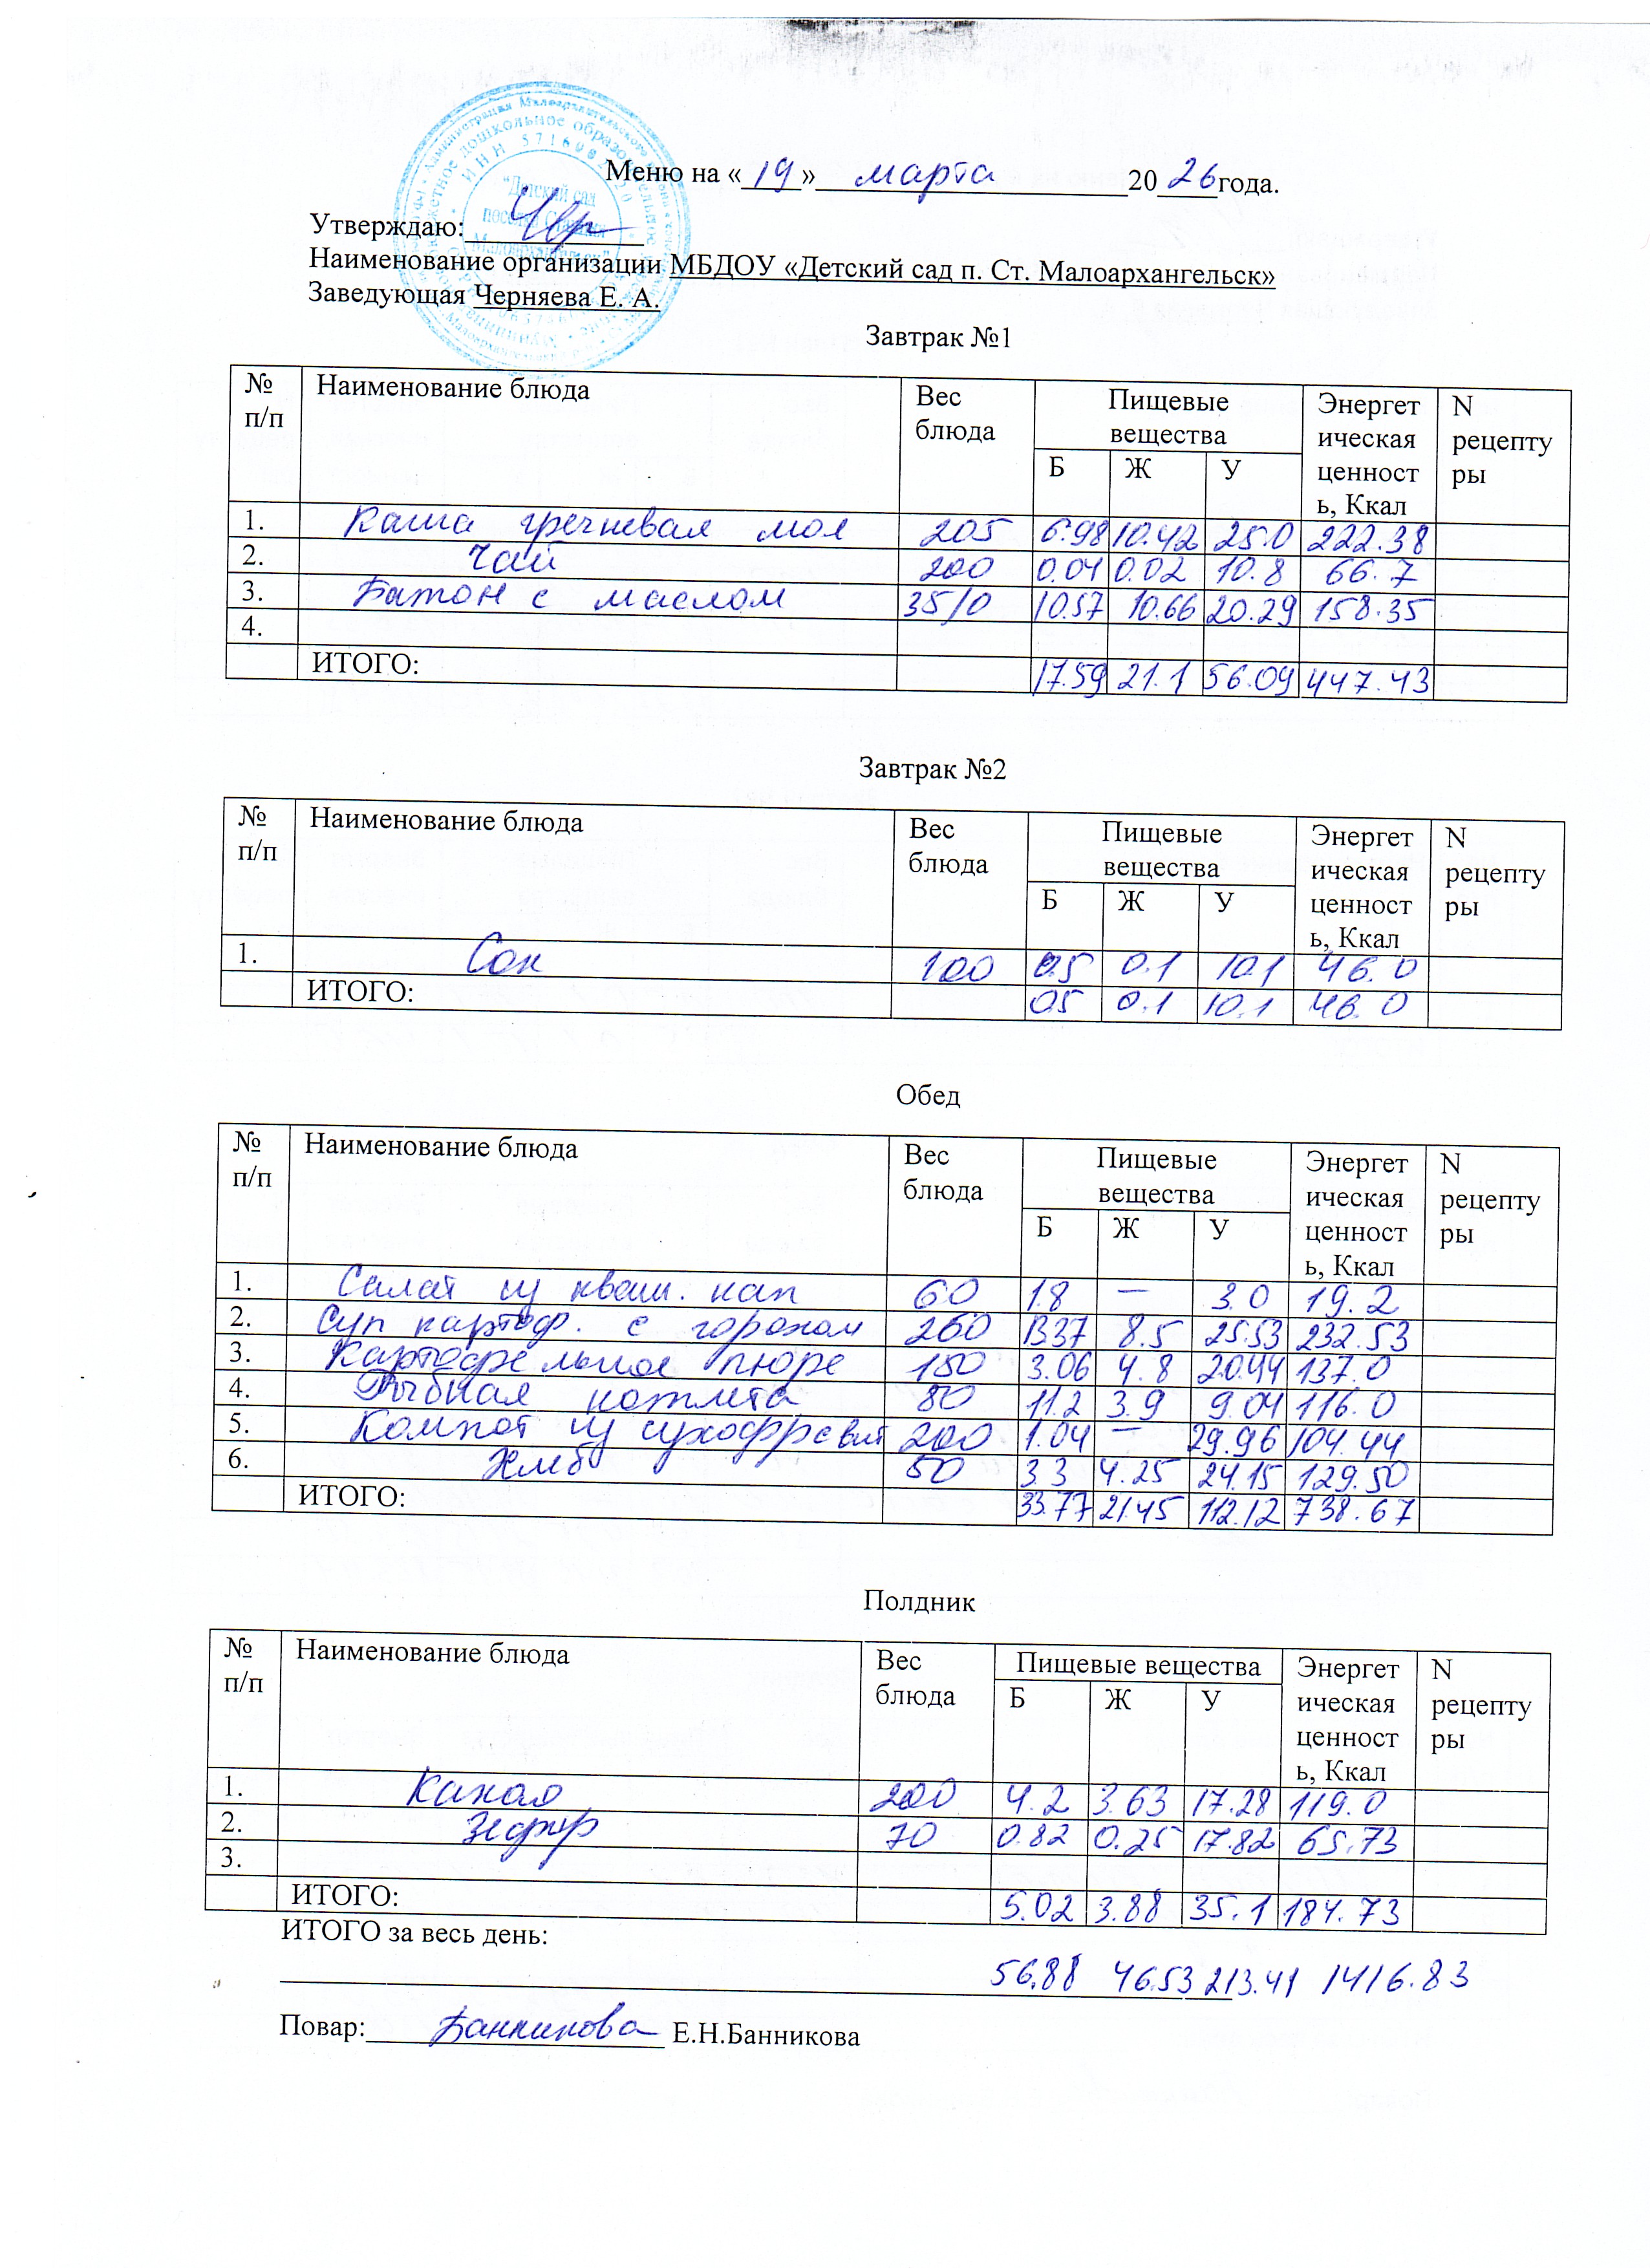 Меню на «19» марта 2026 года.
Утверждаю:
Наименование организации МБДОУ «Детский сад п. Ст. Малоархангельск»
Заведующая Черняева Е. А.
"Детский сад
Завтрак №1
№ п/п Наименование блюда Вес блюда Пищевые вещества Б Ж У Энергетическая ценность, Ккал N рецептуры
1. Каша гречневая мол 205 6.98 10.42 25.0 222.38
2. Чай 200 0.04 0.02 10.8 66.7
3. Батон с маслом 35/0 10.57 10.66 20.29 158.35
4.
ИТОГО: 17.59 21.1 56.09 447.43
Завтрак №2
№ п/п Наименование блюда Вес блюда Пищевые вещества Б Ж У Энергетическая ценность, Ккал N рецептуры
1. Сок 100 0.5 0.1 10.1 46.0
ИТОГО: 0.5 0.1 10.1 46.0
Обед
№ п/п Наименование блюда Вес блюда Пищевые вещества Б Ж У Энергетическая ценность, Ккал N рецептуры
1. Салат из кваш. кап 60 1.8 — 3.0 19.2
2. Суп картоф. с горохом 260 13.37 8.5 25.53 232.53
3. Картофельное пюре 150 3.06 4.8 20.44 137.0
4. Рыбная котлета 80 11.2 3.9 9.04 116.0
5. Компот из сухофруктов 200 1.04 — 29.96 104.44
6. Хлеб 50 3.3 4.25 24.15 129.50
ИТОГО: 33.77 21.45 112.12 738.67
Полдник
№ п/п Наименование блюда Вес блюда Пищевые вещества Б Ж У Энергетическая ценность, Ккал N рецептуры
1. Какао 200 4.2 3.63 17.28 119.0
2. Зефир 70 0.82 0.25 17.82 65.73
3.
ИТОГО: 5.02 3.88 35.1 184.73
ИТОГО за весь день:
56.88 46.53 213.41 1416.83
Повар: Банникова Е.Н.Банникова